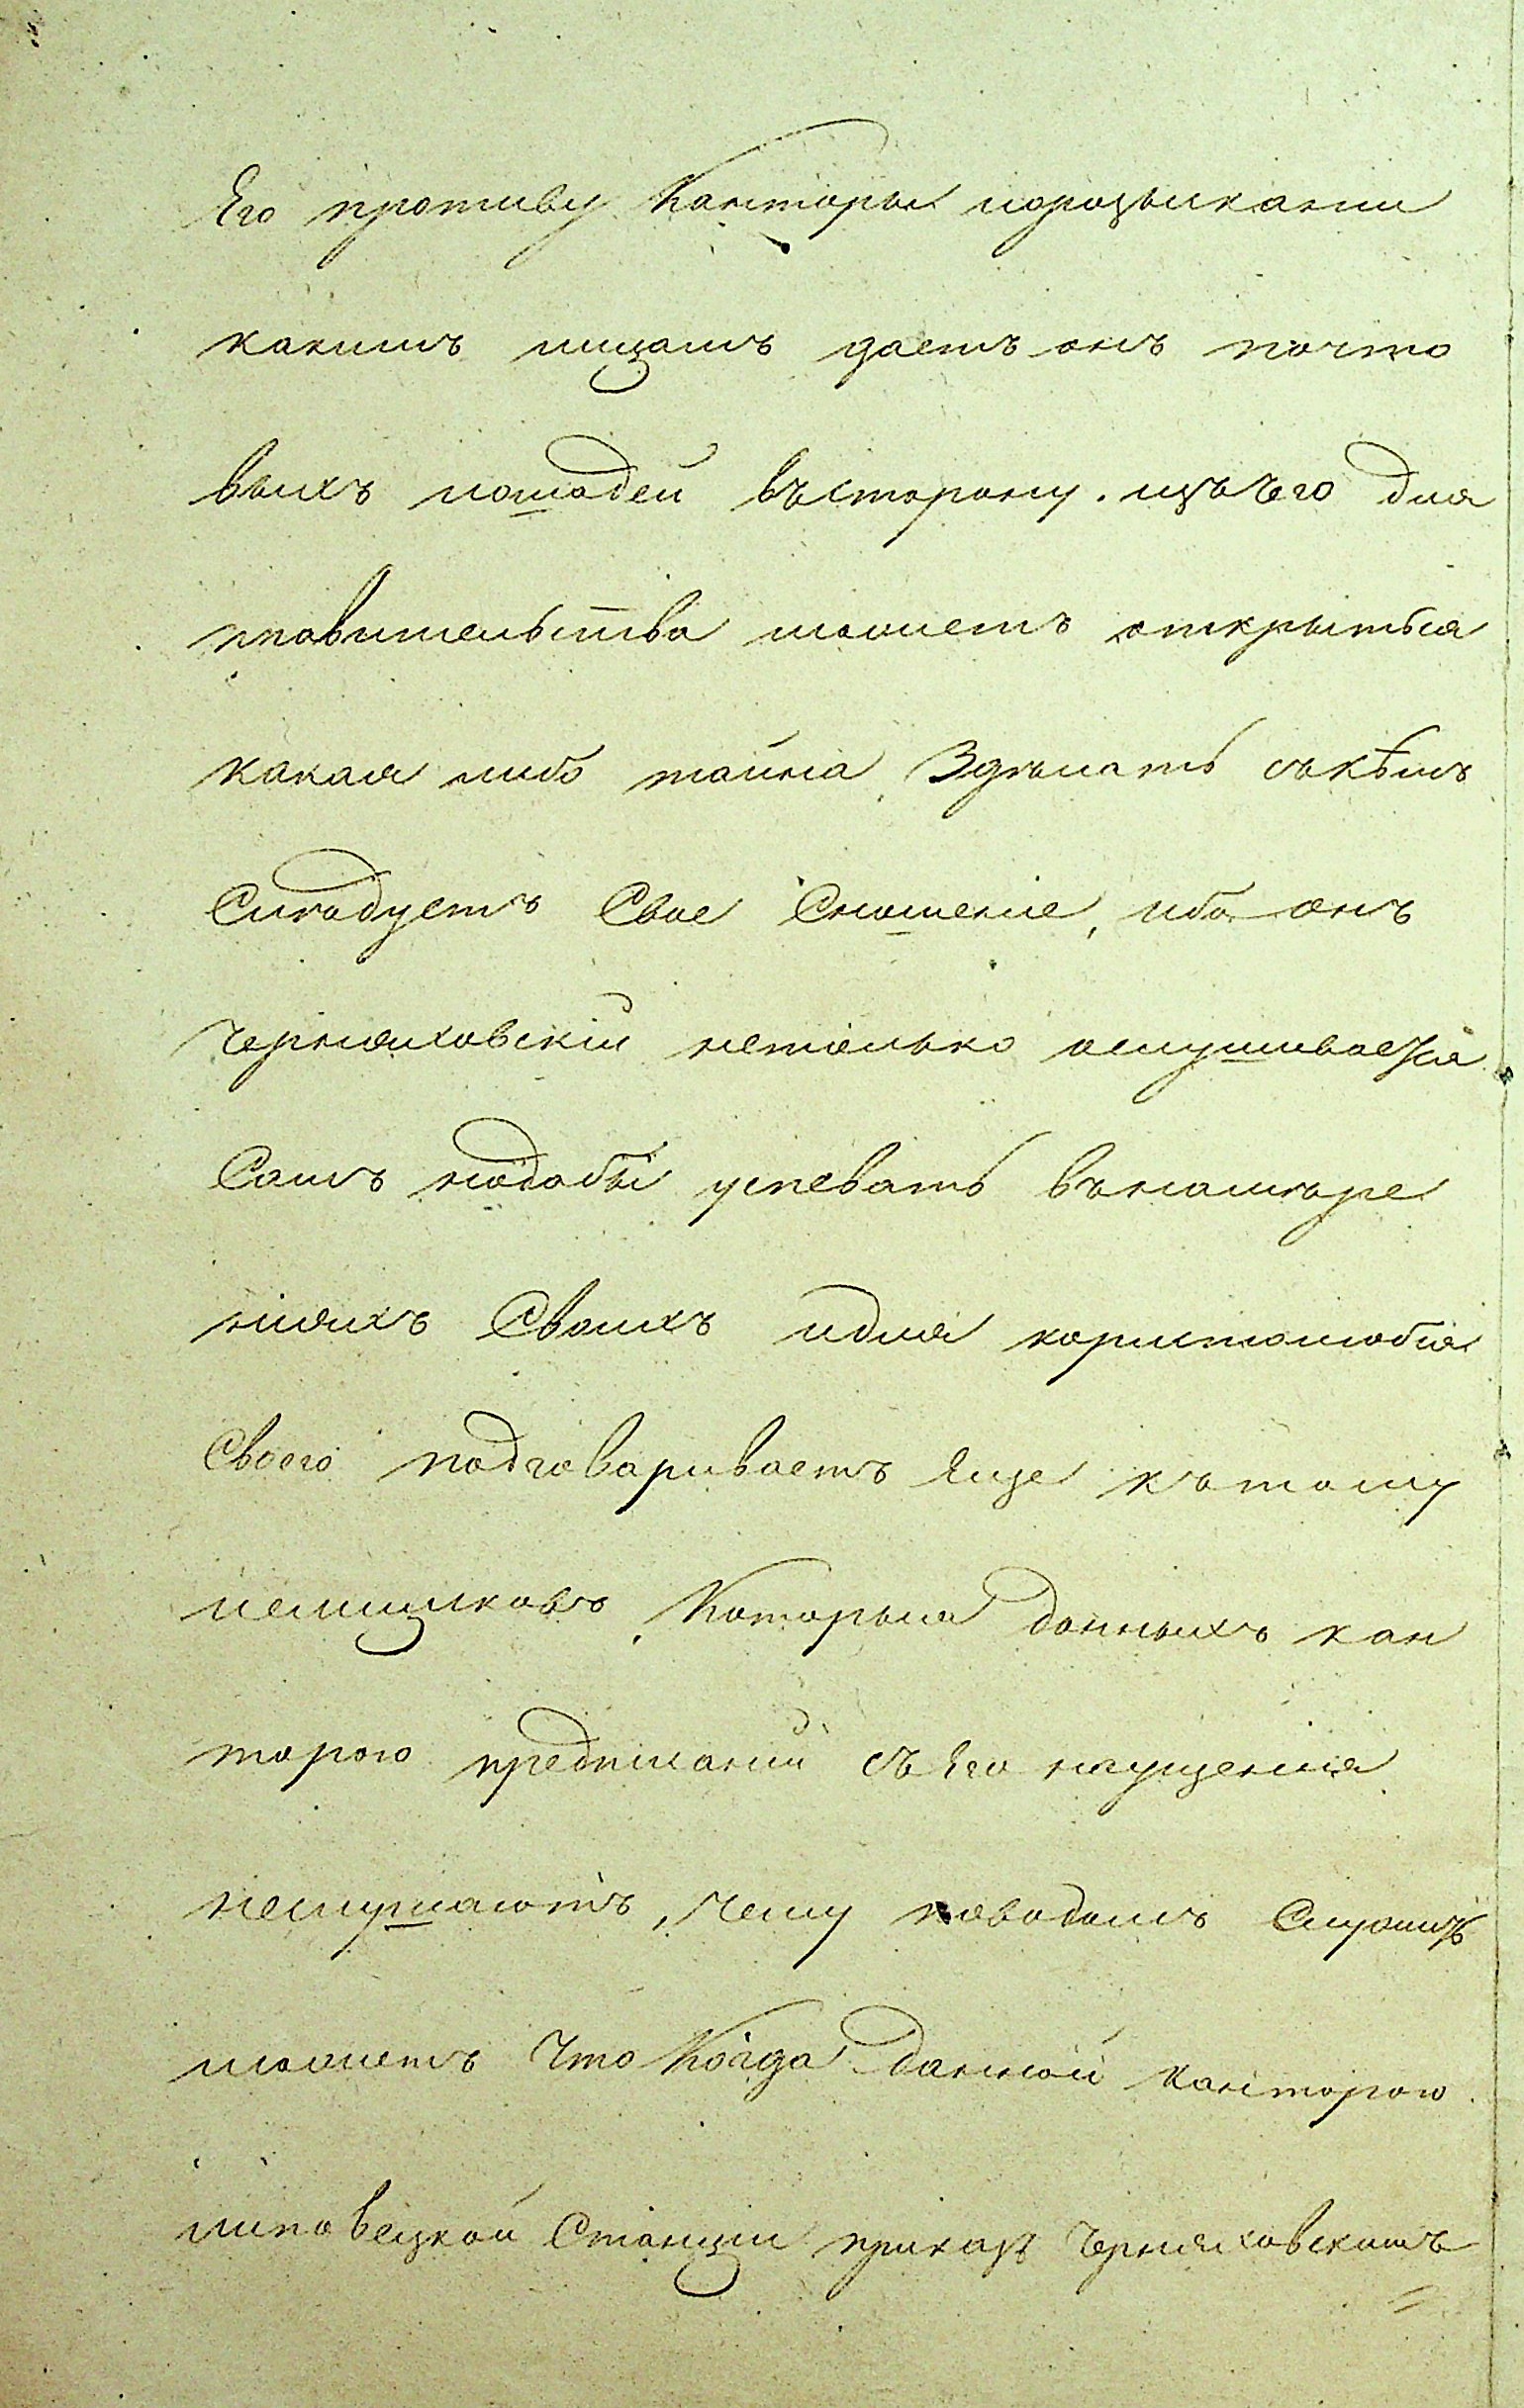 Его противу Канторы ироизыкании
какимъ лицамъ даетъ онъ почто
выхъ лошадей въсторону. изъчего для
правительства можетъ открыться
какая либо тайна Здѣлать съкѣмъ
Слѣдуетъ Свое Сношеніе, ибо онъ
Черняховскій нетолько ослушивается
Самъ нодабы успевать внамѣре
ніяхъ Своихъ идля користолюбія
Своего подговариваетъ Еще кътому
иемщиковъ Которыя данныхъ кан
торою предписаній съЕго наущенія
неслушаютъ, Чему поводомъ Служить
можетъ Что Когда данной канторою
липовецкой Станции приказъ Черняховскимъ